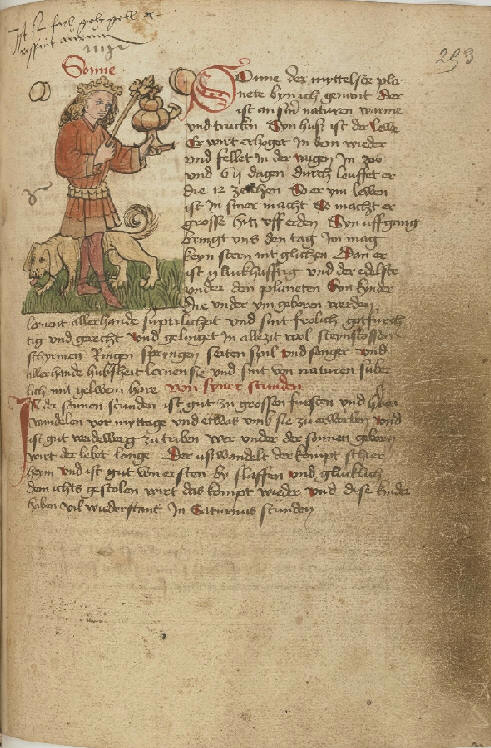 293
Sonne
Sonne der myttelste pla
nete byn ich genent der
ist an siner naturen warme
und trucken Syn huß ist der lewe
Er wirt erhoget in dem wieder
und fellet in der wagen In 365
und 6 dagen durch leuffet er
die 12 zeichen Wer ym lewen
ist in siner macht So macht er
grosse hitz uff erden Syn uffgang
bringt uns den tag Im mag
keyn stern mit glichen Dan er
ist gluckhafftig und der edelste
under den planeten Syn kinder
die under ym geboren werden
lernent allerhande suptilickeit und sint frolich
tig und gerecht und gelinget in allezit wol steinstossen
schyrmen Ringen springen seiten spil und senger und
allerhande hubscheit lernen sie und sint von naturen suber
lich mit gelwem hore von syner stunden
In der sonnen stunden ist gut zu grossen fursten und
wandelen vor myttage und etwas umb sie zu erwerben und
ist gut zu triben wer under der sonnen geborn
wirt der lebet lange Der ußwandelt der kompt schier
heym und ist gut von ersten by slaffen und glucklich
dem ichts gestolen wirt das kompt wieder und dise kinder
haben vil wiederstant In Saturnus stunden